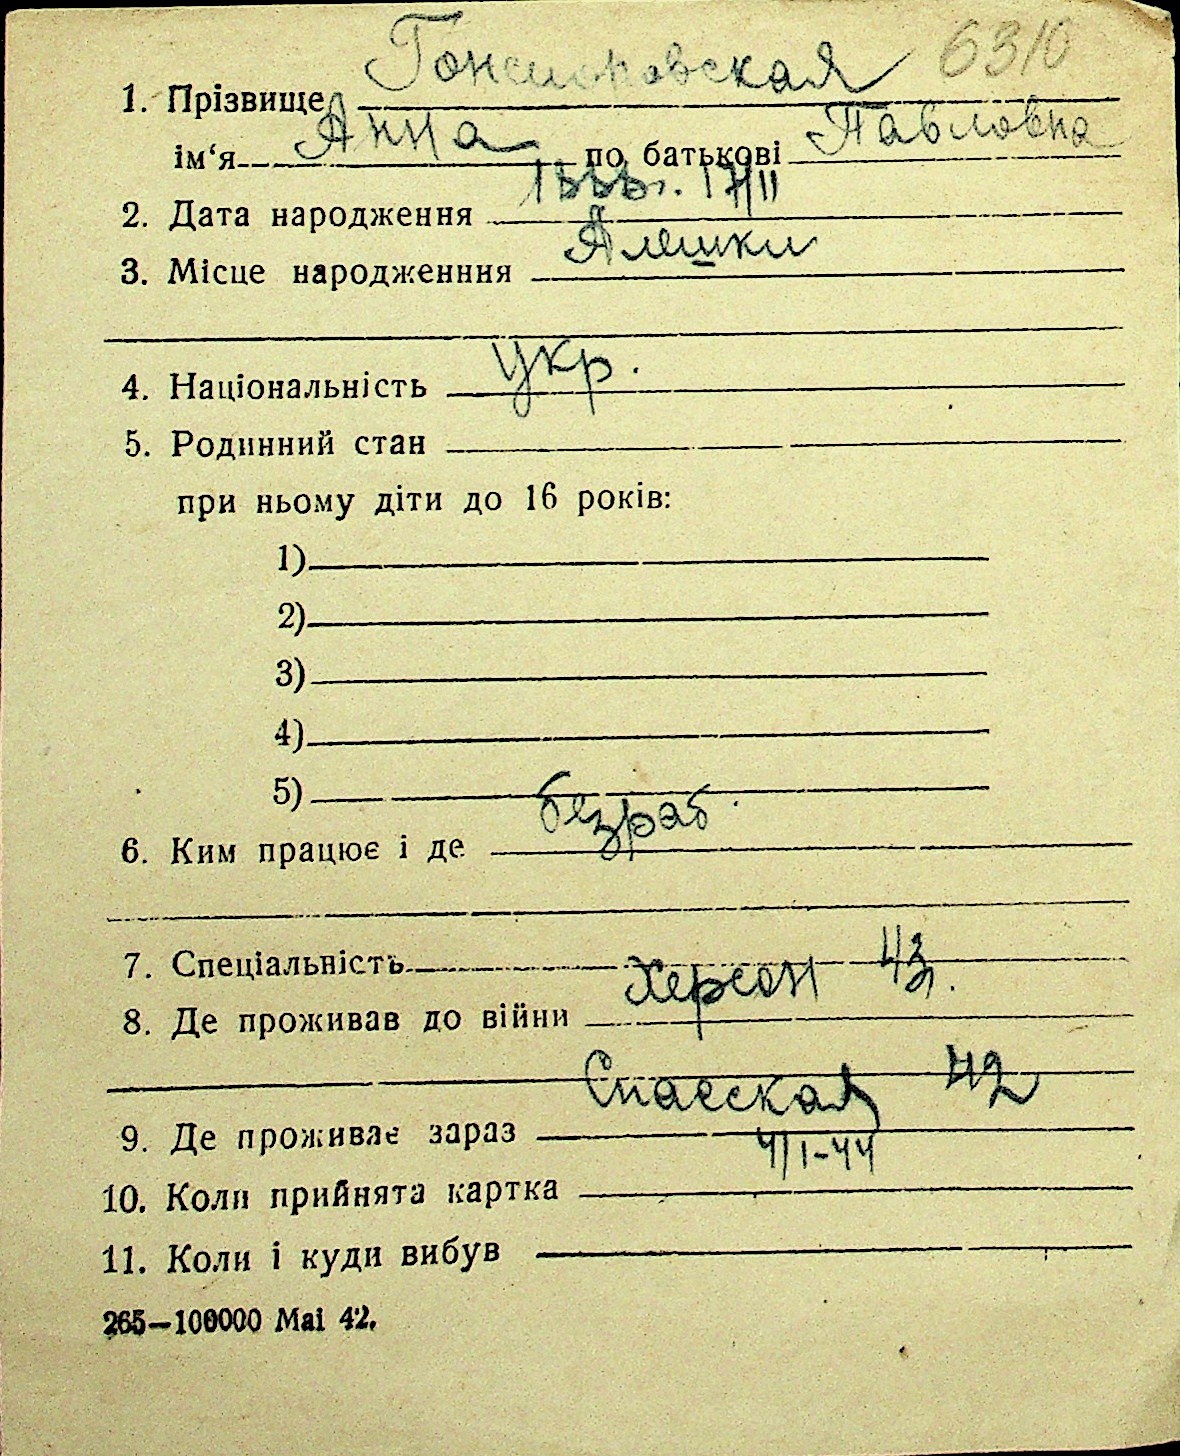 6310
1. Прізвище Гонсиоровская
ім‘я Анна по батькові Павловна
2. Дата народження 1888г. 17/II
3. Місце народженння Алешки
4. Національність укр.
5. Родинний стан
при ньому діти до 16 років:
1)
2)
3)
4)
5)
6. Ким працює і де безраб.
7. Спеціальність
8. Де проживав до війни Херсон
9. Де проживає зараз Спасская 42
10. Коли прийнята картка 4/I-44
11. Коли і куди вибув
265—100000 Mai 42.